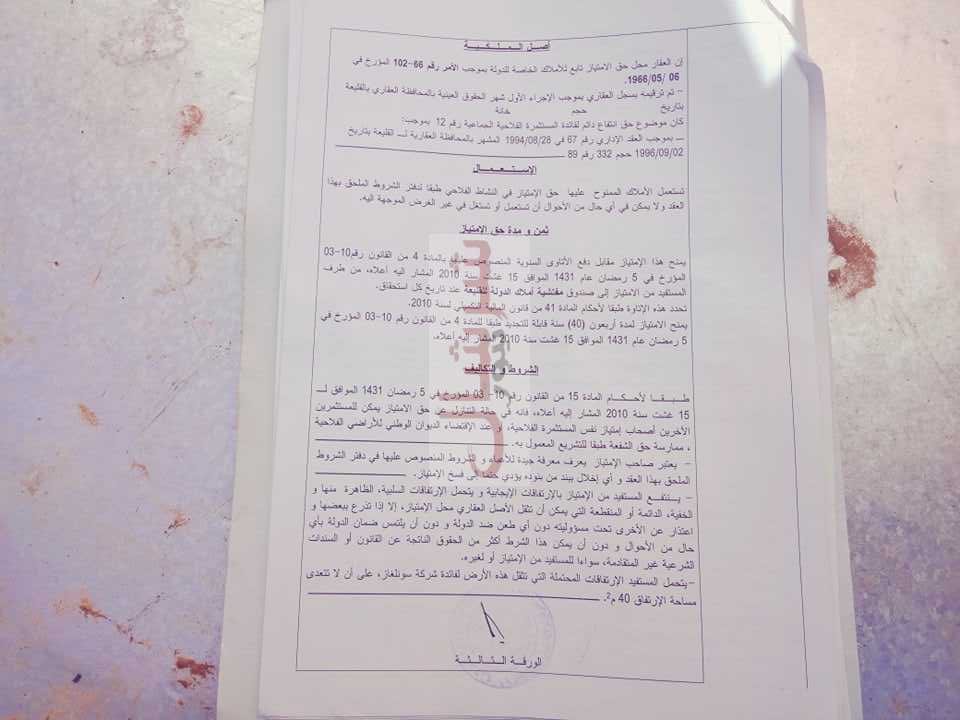 أصل الملكية
إن العقار محل حق الامتياز تابع للأملاك الخاصة للدولة بموجب الأمر رقم 66-102 المؤرخ في
06 /05/ 1966.
– تم ترقيمه بسجل العقاري بموجب الإجراء الأول شهر الحقوق العينية بالمحافظة العقاري بالقليعة
بتاريخ حجم خانة
كان موضوع حق انتفاع دائم لفائدة المستثمرة الفلاحية الجماعية رقم 12 بموجب:
– بموجب العقد الإداري رقم 67 في 1994/08/28 المشهر بالمحافظة العقارية لـ القليعة بتاريخ
1996/09/02 حجم 332 رقم 89
الإستعمال
تستعمل الأملاك الممنوح عليها حق الإمتياز في النشاط الفلاحي طبقا لدفتر الشروط الملحق بهذا
العقد ولا يمكن في أي حال من الأحوال أن تستعمل أو تستغل في غير الغرض الموجهة اليه.
ثمن و مدة حق الإمتياز
يمنح هذا الإمتياز مقابل دفع الأتاوى السنوية المنصوص عليها بالمادة 4 من القانون رقم10-03
المؤرخ في 5 رمضان عام 1431 الموافق 15 غشت سنة 2010 المشار اليه أعلاه، من طرف
المستفيد من الامتياز إلى صندوق مفتشية أملاك الدولة للقليعة عند تاريخ كل استحقاق.
تحدد هذه الإتاوة طبقا لأحكام المادة 41 من قانون المالية التكميلي لسنة 2010.
يمنح الامتياز لمدة أربعون (40) سنة قابلة للتجديد طبقا للمادة 4 من القانون رقم 10-03 المؤرخ في
5 رمضان عام 1431 الموافق 15 غشت سنة 2010 المشار إليه أعلاه.
الشروط و التكاليف
طبقا لأحكام المادة 15 من القانون رقم 10-03 المؤرخ في 5 رمضان 1431 الموافق لـ
15 غشت سنة 2010 المشار اليه أعلاه، فانه في حالة التنازل عن حق الامتياز يمكن للمستثمرين
الأخرين أصحاب إمتياز نفس المستثمرة الفلاحية، و عند الإقتضاء الديوان الوطني للأراضي الفلاحية
، ممارسة حق الشفعة طبقا للتشريع المعمول به.
– يعتبر صاحب الإمتياز يعرف معرفة جيدة للأعباء و الشروط المنصوص عليها في دفتر الشروط
الملحق بهذا العقد و أي إخلال ببند من بنوده يؤدي حتما إلى فسخ الإمتياز.
– ينتفع المستفيد من الإمتياز بالإرتفاقات الإيجابية و يتحمل الإرتفاقات السلبية، الظاهرة منها و
الخفية، الدائمة أو المنقطعة التي يمكن أن تثقل الأصل العقاري محل الإمتياز، إلا إذا تذرع ببعضها و
اعتذار عن الأخرى تحت مسؤوليته دون أي طعن ضد الدولة و دون أن يلتمس ضمان الدولة بأي
حال من الأحوال و دون أن يمكن هذا الشرط أكثر من الحقوق الناتجة عن القانون أو السندات
الشرعية غير المتقادمة، سواءا للمستفيد من الإمتياز أو لغيره.
– يتحمل المستفيد الإرتفاقات المحتملة التي تثقل هذه الأرض لفائدة شركة سونلغاز، على أن لا تتعدى
مساحة الإرتفاق 40 م2.
الورقة الثالثة